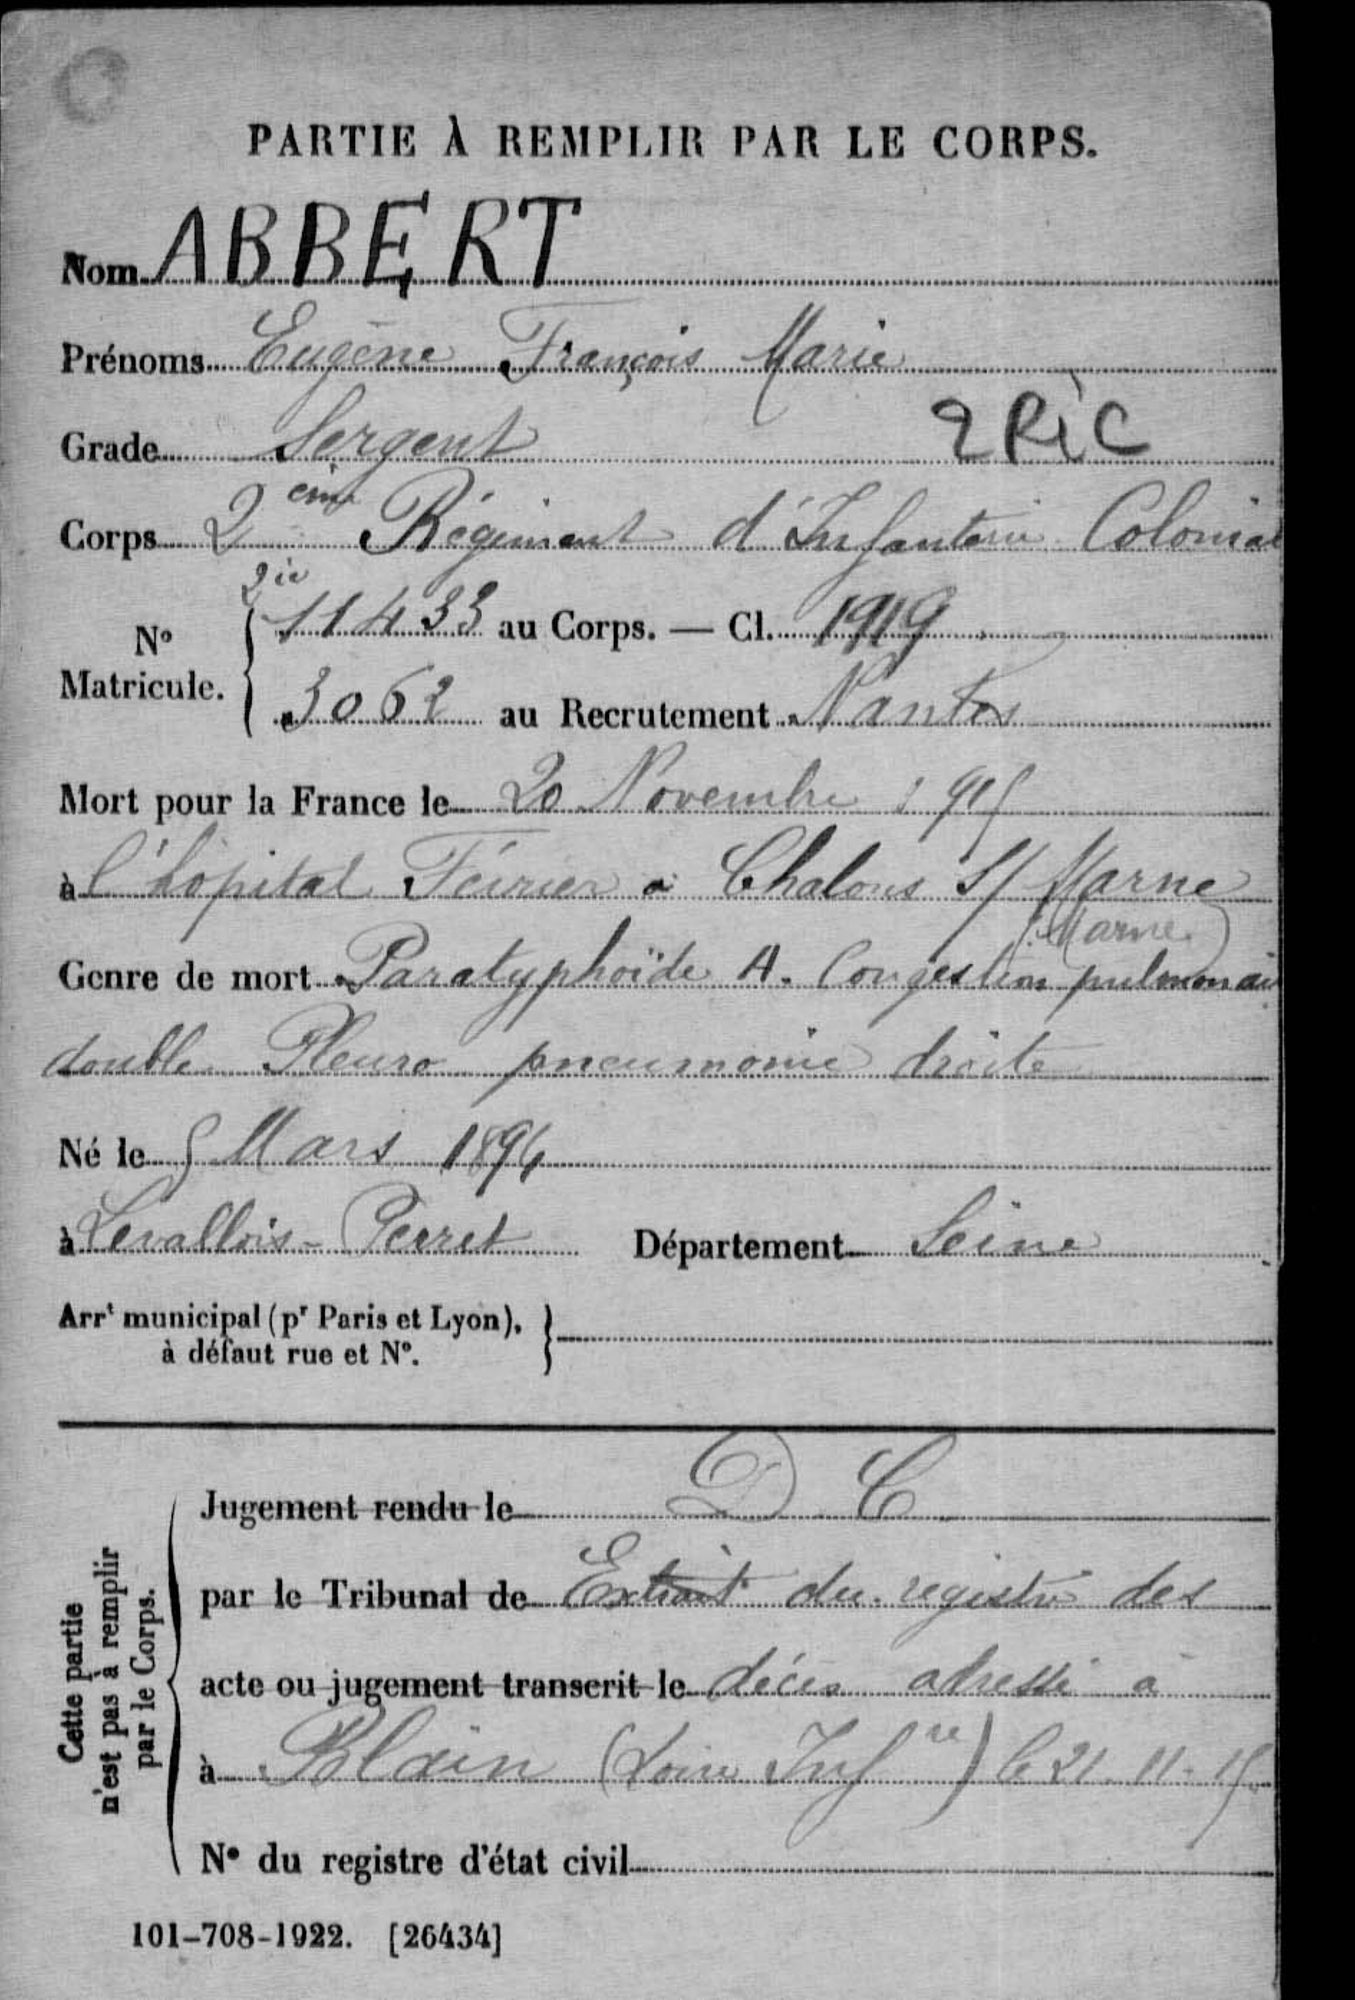 PARTIE À REMPLIR PAR LE CORPS.
Nom ABBERT
Prénoms Eugène François Marie
Grade Sergent 2 RIC
Corps 2ème Régiment d'Infanterie Colonial
2ie
N° Matricule. 11433 au Corps. — Cl. 1919
3062 au Recrutement Nantes
Mort pour la France le 20 Novembre 1915
à l'hôpital Février à Chalons S/ Marne
(Marne)
Genre de mort Paratyphoïde A. Congestion pulmonaire
double Pleuro pneumonie droite
Né le 5 Mars 1894
à Levallois-Perret Département Seine
Arrt municipal (pr Paris et Lyon),
à défaut rue et N°.
Cette partie
n'est pas à remplir
par le Corps.
Jugement rendu le D C
par le Tribunal de Extrait du registre des
acte ou jugement transcrit le décès adressé à
à Blain (Loire Infre) le 21.11.15
N° du registre d'état civil
101-708-1922. [26434]